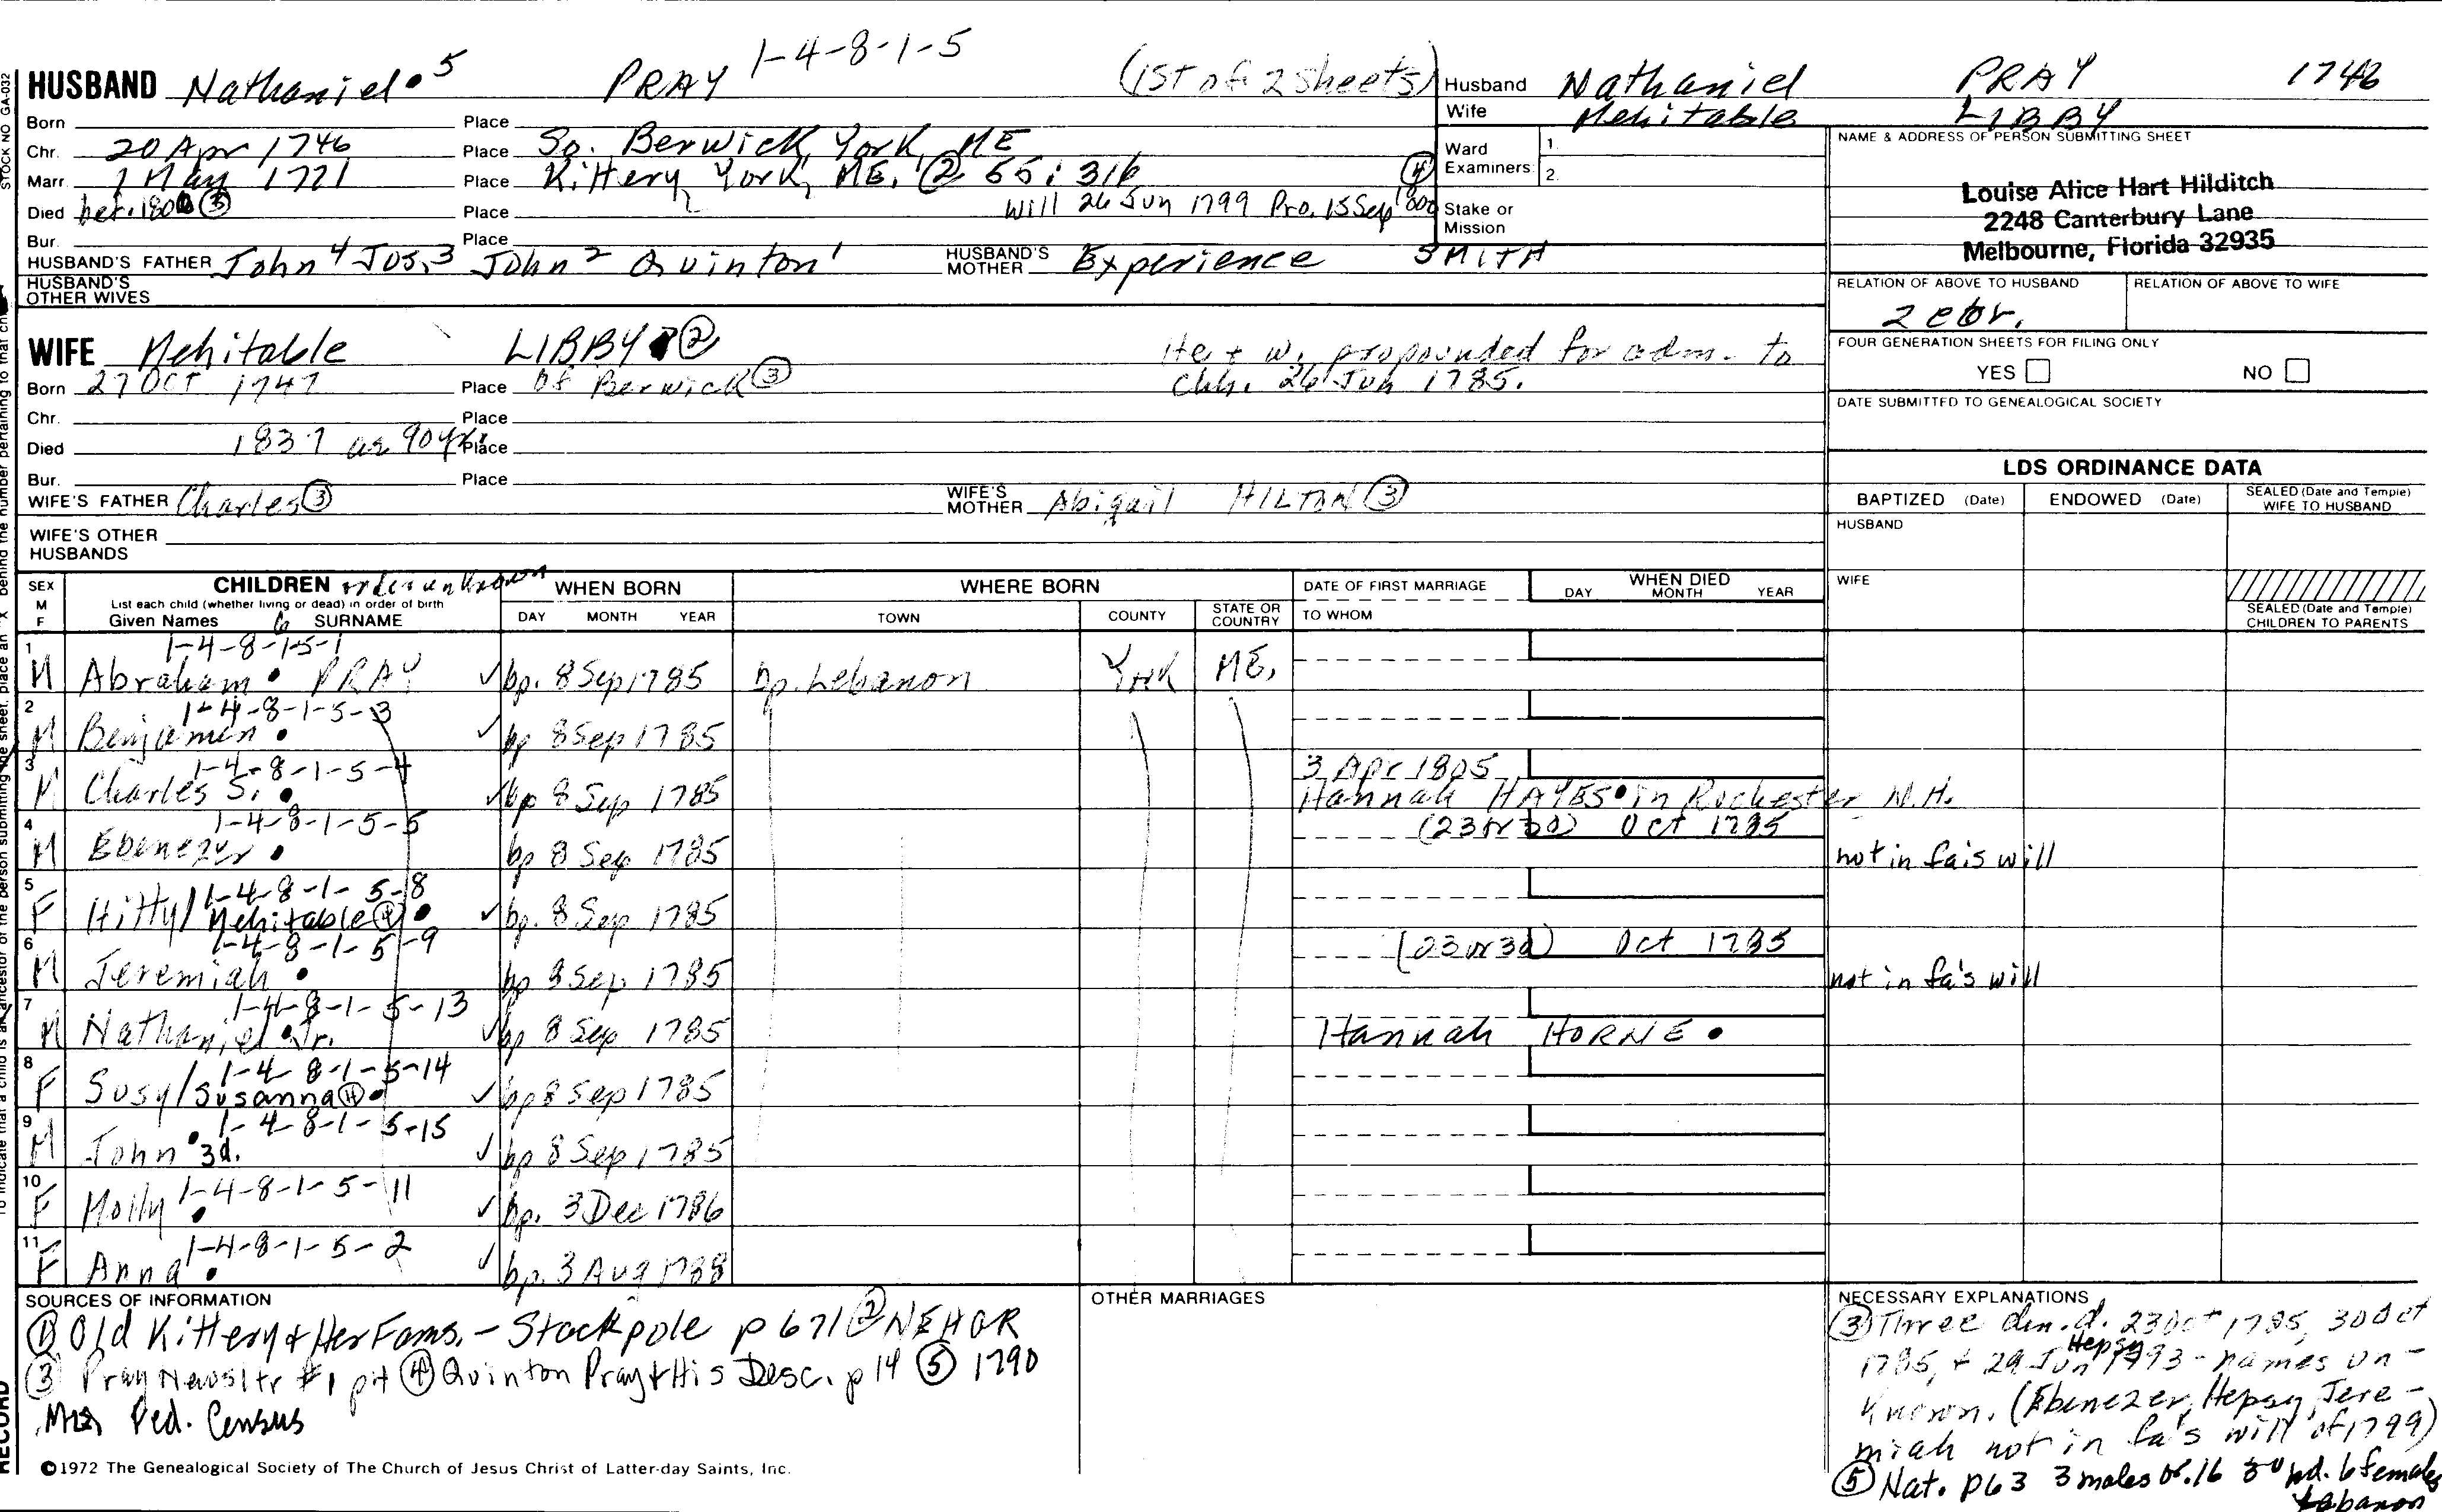 1-4-8-1-5
HUSBAND Nathaniel 5 PRAY (1st of 2 sheets)
Born Place
Chr. 20 Apr 1746 Place So. Berwick, York, ME
Marr. 1 May 1771 Place Kittery, York, ME. ② 55:316 ④
Died bef. 1800 ③ Place Will 26 Jun 1799 Pro. 15 Sep 1800
Bur. Place
HUSBAND'S FATHER John 4 Jos. 3 John 2 Quinton 1 HUSBAND'S MOTHER Experience SMITH
HUSBAND'S OTHER WIVES
Husband Nathaniel PRAY 1746
Wife Mehitable LIBBY
Ward Examiners: 1. 2.
Stake or Mission
NAME & ADDRESS OF PERSON SUBMITTING SHEET
Louise Alice Hart Hilditch
2248 Canterbury Lane
Melbourne, Florida 32935
RELATION OF ABOVE TO HUSBAND RELATION OF ABOVE TO WIFE
FOUR GENERATION SHEETS FOR FILING ONLY
YES NO
DATE SUBMITTED TO GENEALOGICAL SOCIETY
WIFE Mehitable LIBBY ② He + w. propounded for adm. to
Born 27 Oct 1747 Place of Berwick ③ chh. 26 Jun 1785.
Chr. Place
Died 1837 ae 90 yrs. Place
Bur. Place
WIFE'S FATHER Charles ③ WIFE'S MOTHER Abigail HILTON ③
WIFE'S OTHER HUSBANDS
LDS ORDINANCE DATA
BAPTIZED (Date) ENDOWED (Date) SEALED (Date and Temple) WIFE TO HUSBAND
HUSBAND
WIFE
SEALED (Date and Temple) CHILDREN TO PARENTS
SEX M F CHILDREN order unknown WHEN BORN WHERE BORN DATE OF FIRST MARRIAGE WHEN DIED
List each child (whether living or dead) in order of birth DAY MONTH YEAR
Given Names SURNAME DAY MONTH YEAR TOWN COUNTY STATE OR COUNTRY TO WHOM
1 1-4-8-1-5-1
M Abraham PRAY ✓ bp. 8 Sep 1785 bp. Lebanon York ME,
2 1-4-8-1-5-3
M Benjamin ✓ bp 8 Sep 1785
3 1-4-8-1-5-4 3 Apr 1805
M Charles S. ✓ bp 8 Sep 1785 Hannah HAYES in Rochester N.H.
4 1-4-8-1-5-5 (23 or 30) Oct 1785
M Ebenezer bp 8 Sep 1785 not in fa's will
5 1-4-8-1-5-8
F Hitty/Mehitable ④ ✓ bp. 8 Sep 1785
6 1-4-8-1-5-9 (23 or 30) Oct 1785
M Jeremiah bp 8 Sep 1785 not in fa's will
7 1-4-8-1-5-13
M Nathaniel Jr. ✓ bp 8 Sep 1785 Hannah HORNE
8 1-4-8-1-5-14
F Susy/Susanna ④ ✓ bp 8 Sep 1785
9 1-4-8-1-5-15
M John 3d. ✓ bp 8 Sep 1785
10 1-4-8-1-5-11
F Molly ✓ bp. 3 Dec 1786
11 1-4-8-1-5-2
F Anna ✓ bp. 3 Aug 1788
SOURCES OF INFORMATION
① Old Kittery & Her Fams. - Stackpole p 671 ② NEHGR
③ Pray Newsltr #1 p4 ④ Quinton Pray & His Desc. p 14 ⑤ 1790
Fed. Census
OTHER MARRIAGES
NECESSARY EXPLANATIONS
③ Three chn. d. 23 Oct 1785, 30 Oct
1785, + 29 Jun Hepsy 1793 - names un-
known. (Ebenezer, Hepsy, Jere-
miah not in fa's will of 1799)
⑤ Nat. p63 3 males 6 females
Lebanon
©1972 The Genealogical Society of The Church of Jesus Christ of Latter-day Saints, Inc.
STOCK NO GA-032
RECORD